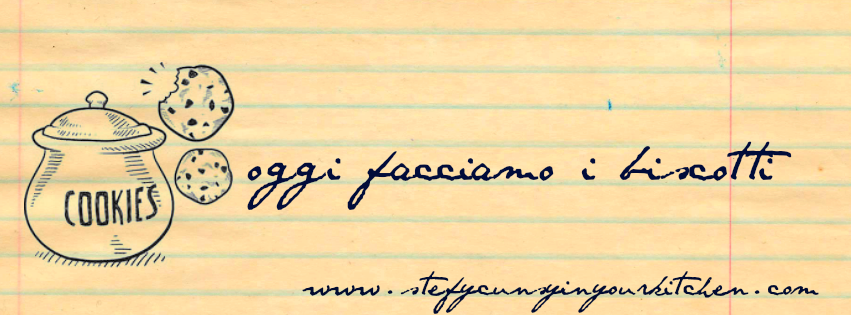 COOKIES
oggi facciamo i biscotti
www.stefycunsyinyourkitchen.com